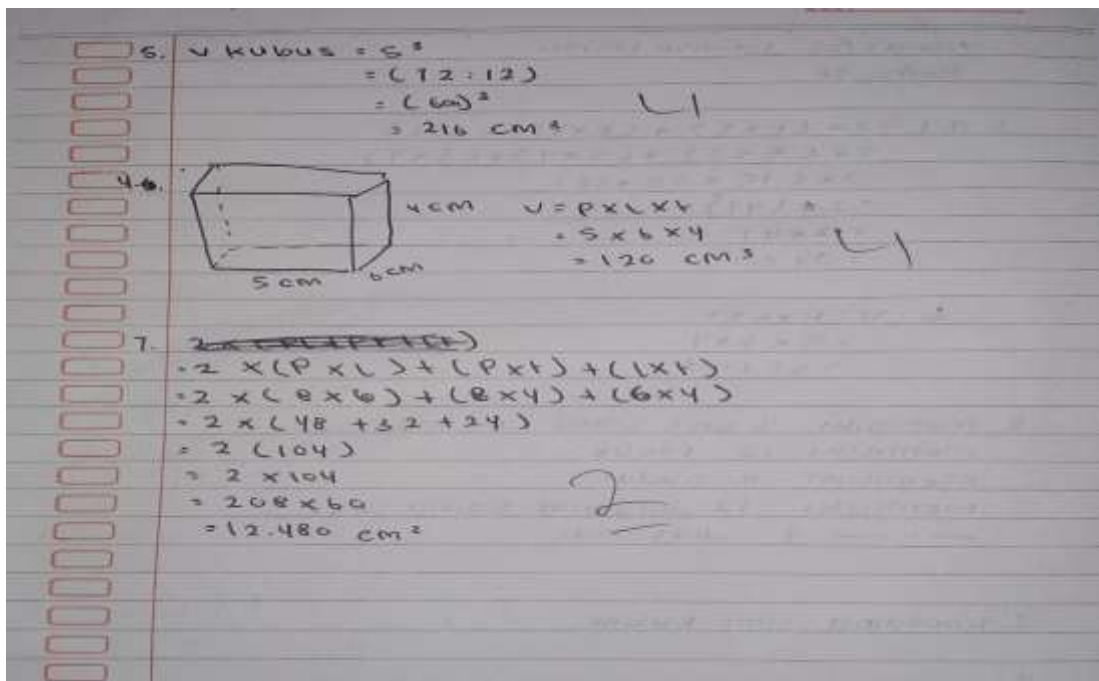 5. V kubus = S³
= (72 : 12)
= (6 )³
= 216 cm³
4 6.
4 cm
5 cm
6 cm
V = P x L x t
= 5 x 6 x 4
= 120 cm³
7.
= 2 x (P x L) + (P x t) + (l x t)
= 2 x (8 x 6) + (8 x 4) + (6 x 4)
= 2 x (48 + 32 + 24)
= 2 (104)
= 2 x 104
= 208 x 60
= 12.480 cm²
2